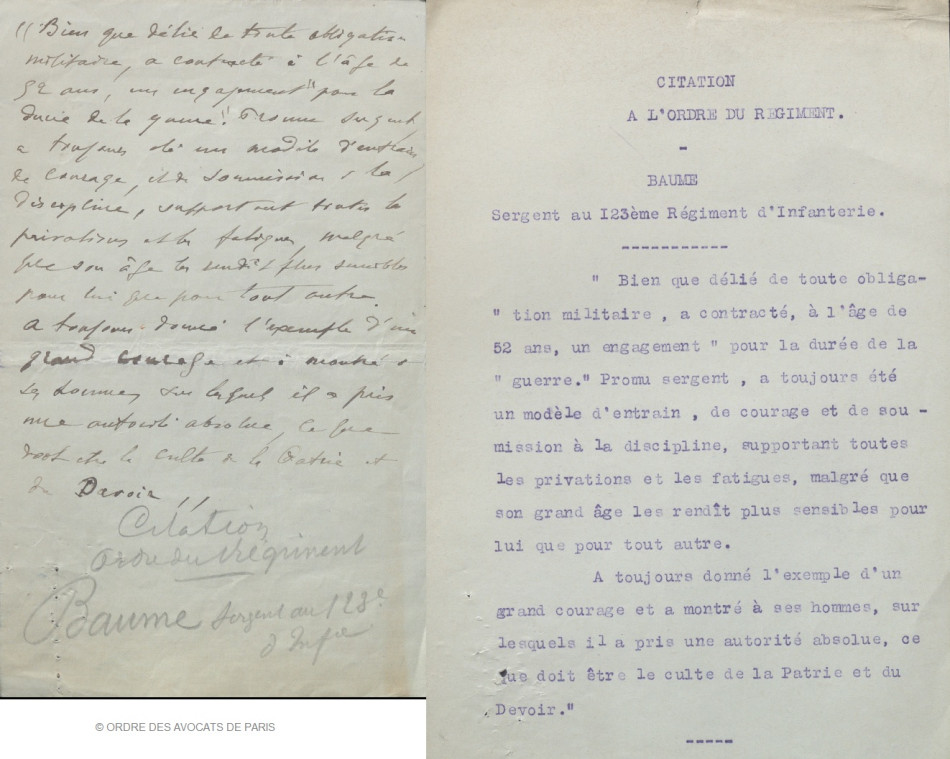 " Bien que délié de toute obligation
militaire, a contracté à l'âge de
52 ans, un engagement " pour la
durée de la guerre". Promu sergent,
a toujours été un modèle d'entrain
de courage, et de soumission à la
discipline, supportant toutes les
privations et les fatigues, malgré
que son âge les rendît plus sensibles
pour lui que pour tout autre.
a toujours donné l'exemple d'un
grand courage et a montré à
ses hommes, sur lesquels il a pris
une autorité absolue, ce que
doit être le culte de la Patrie et
du Devoir "
Citation
Ordre du Régiment
Baume Sergent au 123e
d'Infie
© ORDRE DES AVOCATS DE PARIS
CITATION
A L'ORDRE DU REGIMENT.
-
BAUME
Sergent au I23ème Régiment d'Infanterie.
-----------
" Bien que délié de toute obliga-
" tion militaire , a contracté, à l'âge de
52 ans, un engagement " pour la durée de la
" guerre." Promu sergent , a toujours été
un modèle d'entrain , de courage et de sou -
mission à la discipline, supportant toutes
les privations et les fatigues, malgré que
son grand âge les rendît plus sensibles pour
lui que pour tout autre.
A toujours donné l'exemple d'un
grand courage et a montré à ses hommes, sur
lesquels il a pris une autorité absolue, ce
que doit être le culte de la Patrie et du
Devoir."
-----